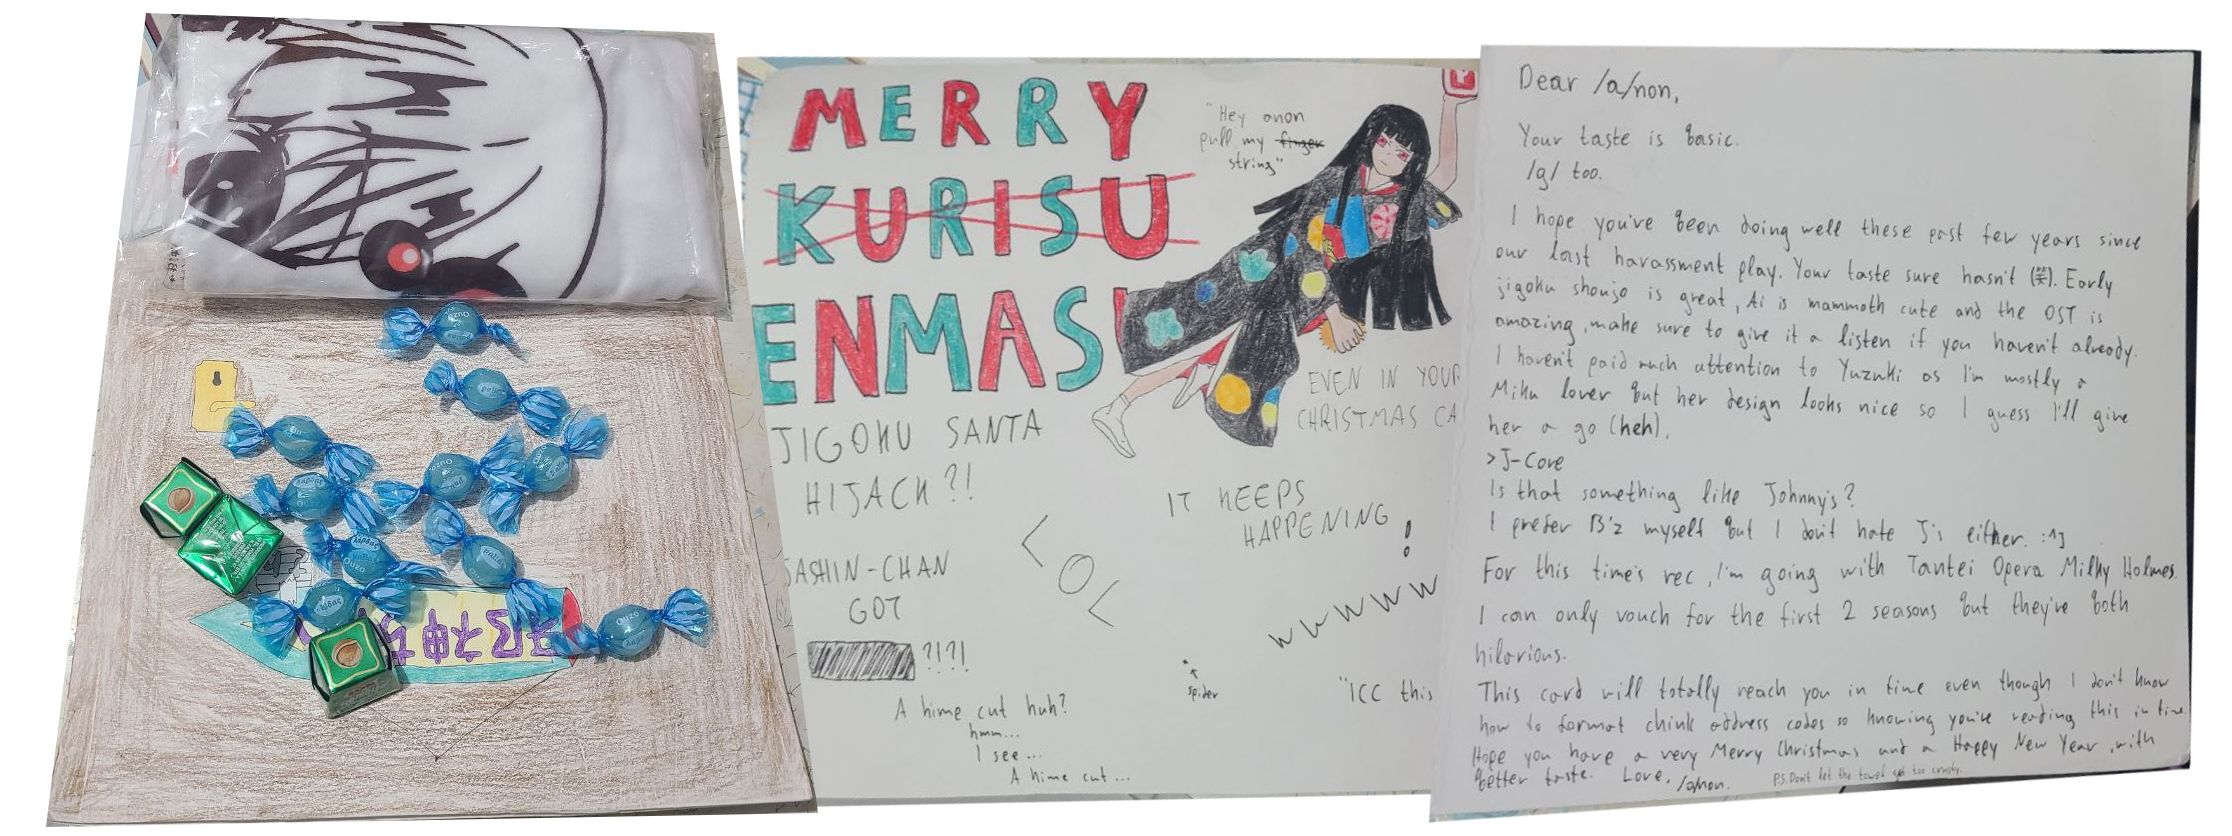 Ouzo
Ouzo
Ouzo
Ouzo
Ouzo
MERRY
KURISU
ENMAS
"Hey anon
pull my finger
string"
EVEN IN YOUR
CHRISTMAS CA
JIGOKU SANTA
HIJACK?!
IT KEEPS
HAPPENING!
SASHIN-CHAN
GOT
?!?!
wwwww
spider
"ICC this
A hime cut huh?
hmm...
I see...
A hime cut...
Dear /a/non,
Your taste is basic.
/g/ too.
I hope you've been doing well these past few years since
our last harassment play. Your taste sure hasn't (笑). Early
jigoku shoujo is great, Ai is mammoth cute and the OST is
amazing, make sure to give it a listen if you haven't already.
I haven't paid much attention to Yuzuki as I'm mostly a
Miku lover but her design looks nice so I guess I'll give
her a go (heh).
>J-Core
Is that something like Johnny's?
I prefer B'z myself but I don't hate J's either. :^]
For this time's rec, I'm going with Tantei Opera Milky Holmes.
I can only vouch for the first 2 seasons but they're both
hilarious.
This card will totally reach you in time even though I don't know
how to format chink address codes so knowing you're reading this in time
Hope you have a very Merry Christmas and a Happy New Year, with
better taste. Love, /a/non.
P.S. Don't let the towel get too crusty.